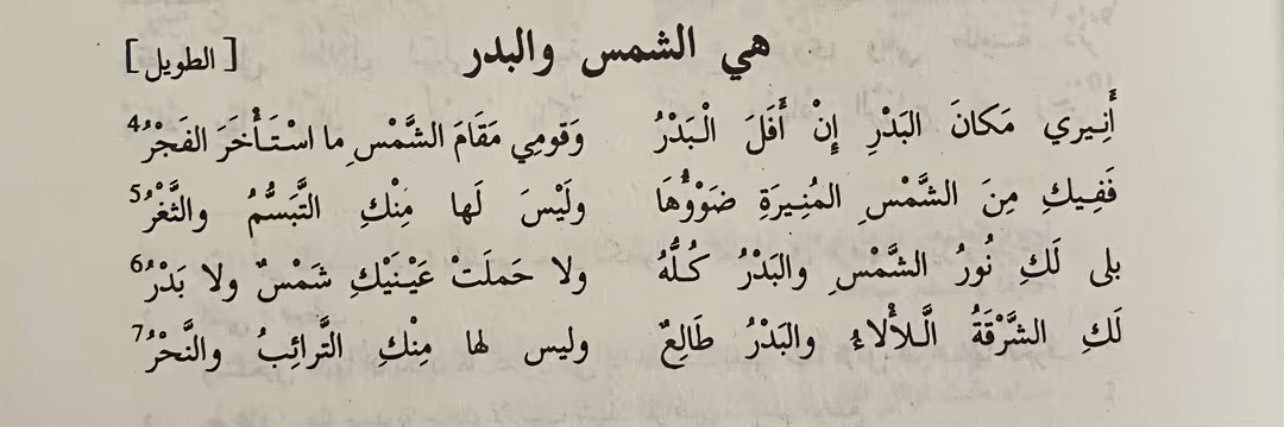 هي الشمس والبدر [الطويل]
أَنِيري مَكانَ البَدْرِ إِنْ أَفَلَ الْبَدْرُ وَقومِي مَقَامَ الشَّمْسِ ما اسْتَأْخَرَ الفَجْرُ4
فَفِيكِ مِنَ الشَّمْسِ المُنِيرَةِ ضَوْؤُهَا ولَيْسَ لَها مِنْكِ التَّبَسُّمُ والثَّغْرُ5
بلى لَكِ نُورُ الشَّمْسِ والبَدْرُ كُلُّهُ ولا حَملَتْ عَيْنَيْكِ شَمْسٌ ولا بَدْرُ6
لَكِ الشَّرْقَةُ الَّلأْلاءُ والبَدْرُ طَالِعٌ وليس لها مِنْكِ التَّرائِبُ والنَّحْرُ7